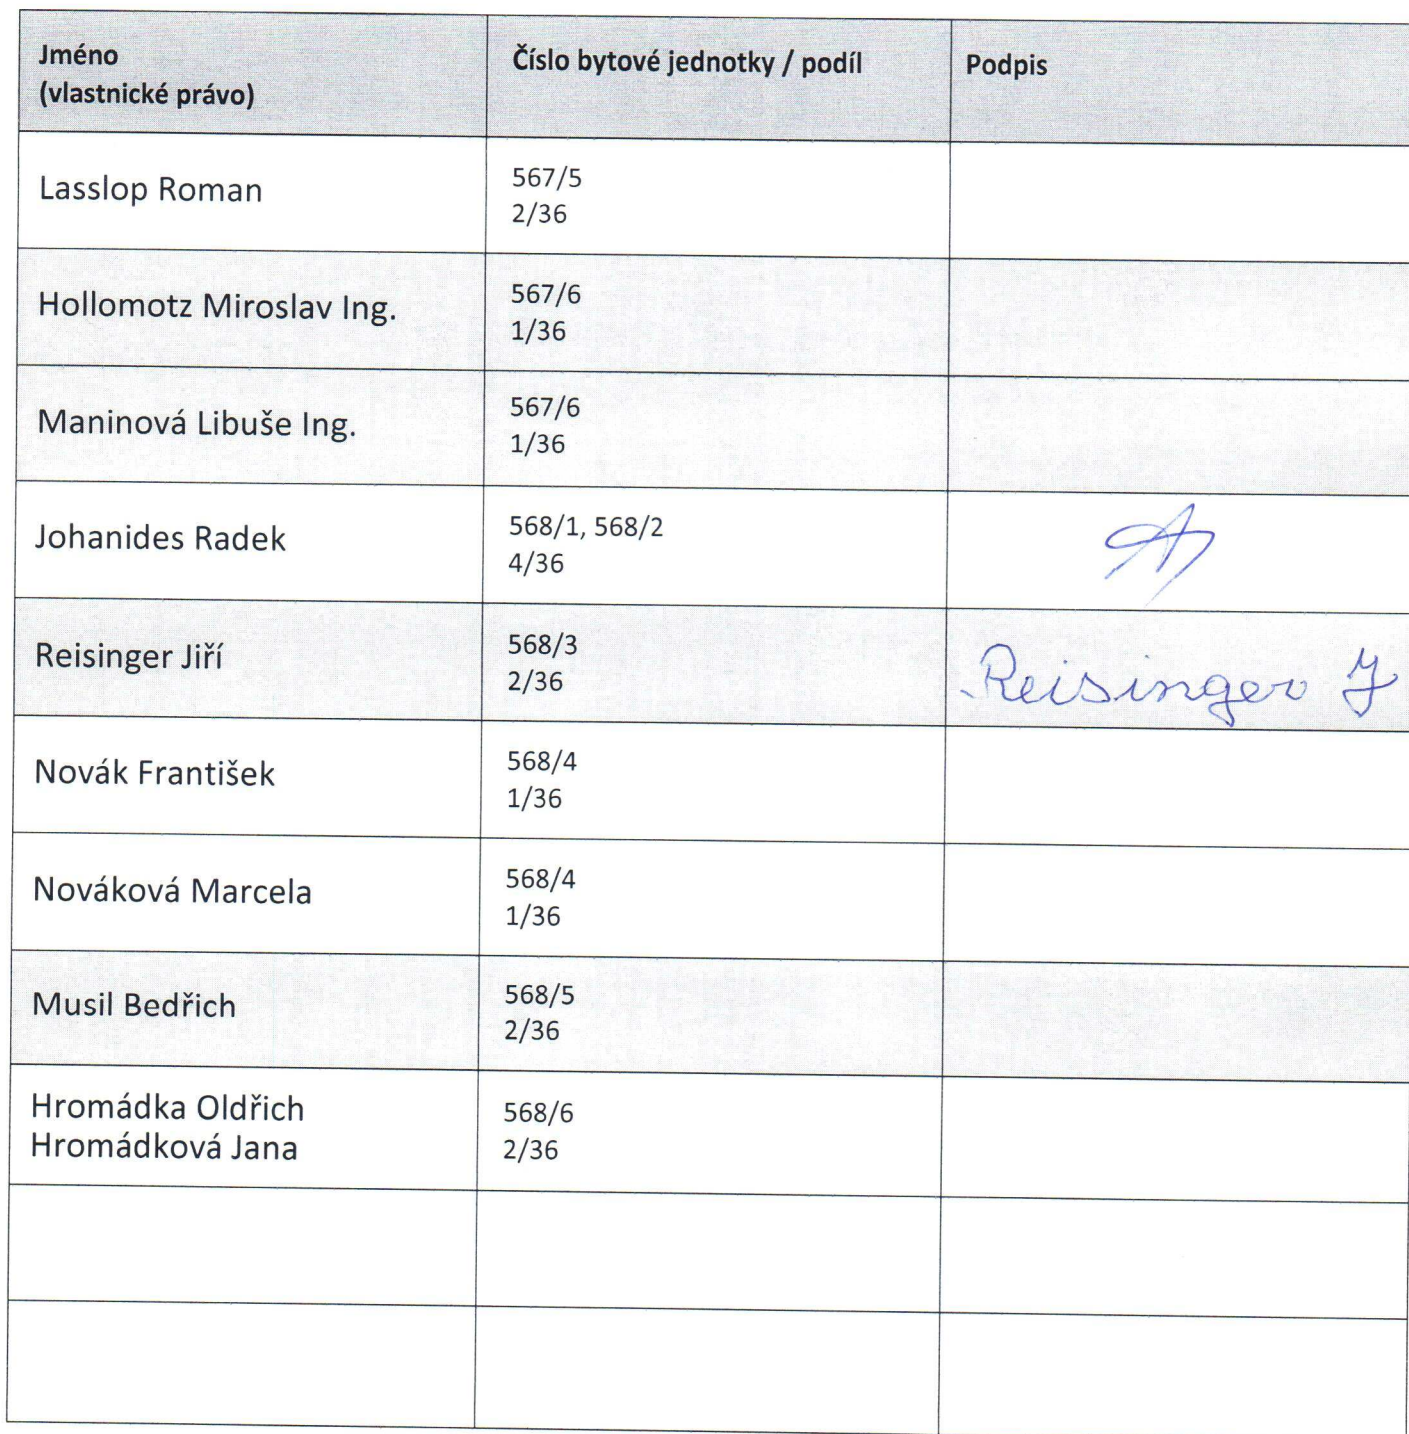 Jméno
(vlastnické právo)
Číslo bytové jednotky / podíl
Podpis
Lasslop Roman
567/5
2/36
Hollomotz Miroslav Ing.
567/6
1/36
Maninová Libuše Ing.
567/6
1/36
Johanides Radek
568/1, 568/2
4/36
Reisinger Jiří
568/3
2/36
Reisinger J
Novák František
568/4
1/36
Nováková Marcela
568/4
1/36
Musil Bedřich
568/5
2/36
Hromádka Oldřich
Hromádková Jana
568/6
2/36